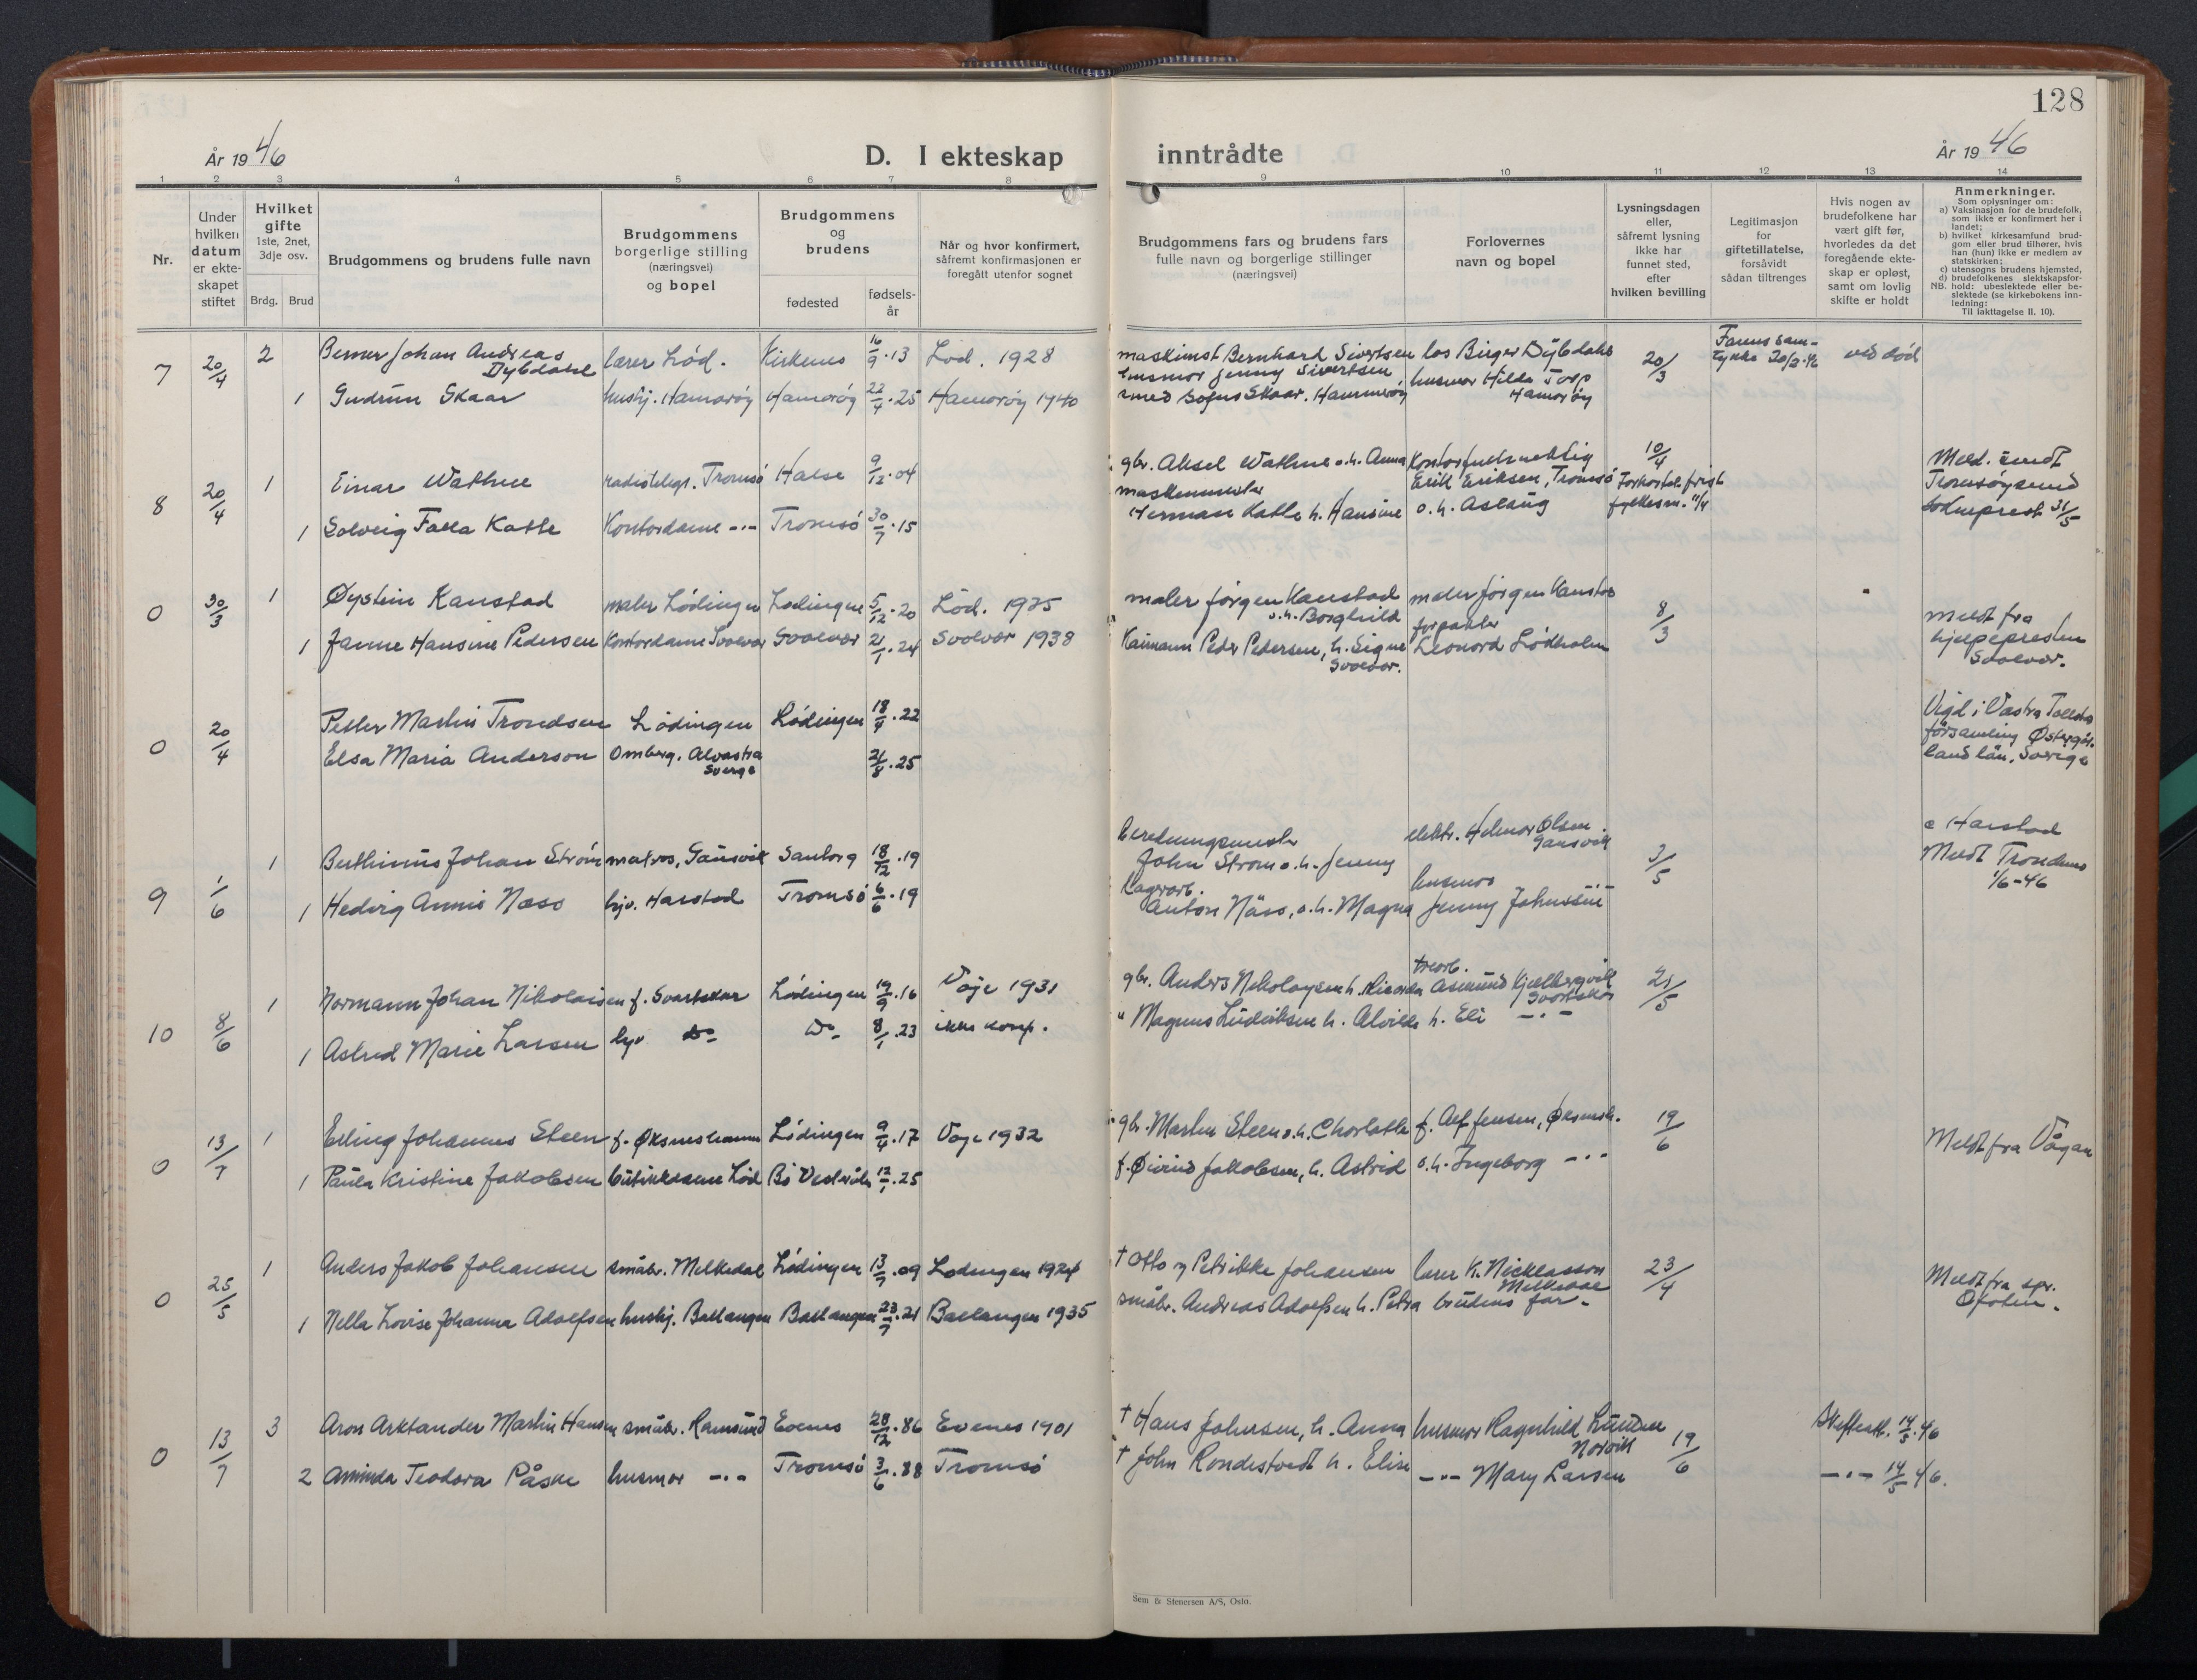 128
År 1946
D. I ekteskap inntrådte
År 1946
1 2 3 4 5 6 7 8 9 10 11 12 13 14
Nr.
Under
hvilken
datum
er ekte-
skapet
stiftet
Hvilket
gifte
1ste, 2net,
3dje osv.
Brdg. Brud
Brudgommens og brudens fulle navn
Brudgommens
borgerlige stilling
(næringsvei)
og bopel
Brudgommens
og
brudens
fødested
fødsels-
år
Når og hvor konfirmert,
såfremt konfirmasjonen er
foregått utenfor sognet
Brudgommens fars og brudens fars
fulle navn og borgerlige stillinger
(næringsvei)
Forlovernes
navn og bopel
Lysningsdagen
eller,
såfremt lysning
ikke har
funnet sted,
efter
hvilken bevilling
Legitimasjon
for
giftetillatelse,
forsåvidt
sådan tiltrenges
Hvis nogen av
brudefolkene har
vært gift før,
hvorledes da det
foregående ekte-
skap er opløst,
samt om lovlig
skifte er holdt
Anmerkninger.
Som oplysninger om:
a) Vaksinasjon for de brudefolk,
som ikke er konfirmert her i
landet;
b) hvilket kirkesamfund brud-
gom eller brud tilhører, hvis
han (hun) ikke er medlem av
statskirken;
c) utensogns brudens hjemsted,
d) brudefolkenes slektskapsfor-
NB. hold: ubeslektede eller be-
slektede (se kirkebokens inn-
ledning:
Til iakttagelse II. 10).
7 20/4 2 Berner Johan Andreas
Dybdahl lærer Lød. Kirkenes 16/9.13 Lød. 1928
1 Gudrun Skaar hushj. Hamarøy Hamarøy 22/4.25 Hamarøy 1940
maskinist Bernhard Sivertsen los Birger Dybdahl
husmor Jenny Sivertsen husmor Hilda Torp
smed Sofus Skaar, Hammerøy Hamarøy
20/3 Farens sam-
tykke 20/2-46 ved død
8 20/4 1 Einar Wathne radiotelegr. Tromsø Halse 9/12.04
1 Solveig Falla Katle Kontordame -"- Tromsø 30/7.15
gbr. Aksel Wathne o.h. Anna Kontorfullmektig
Erik Eriksen, Tromsø
maskinmester
Herman Katle h. Hansine o.h. Aslaug
10/4
Forkortet frist
fylkesm. 11/4
Meld. sendt
Tromsøysund
sokneprest 31/5
0 30/3 1 Øystein Kanstad maler Lødingen Lødingen 5/12.20 Lød. 1935
1 Janne Hansine Pedersen Kontordame Svolvær Svolvær 21/1.24 Svolvær 1938
maler Jørgen Kanstad maler Jørgen Kanstad
o.h. Borghild forpakter
Kaimann Peder Pedersen, h. Signe Leonard Lødholm
Svolvær.
8/3
meldt fra
hjelpepresten
Svolvær.
0 20/4 Petter Martin Trondsen Lødingen Lødingen 18/4.22
Elsa Maria Anderson Omberg, Alvastra
Sverge 21/8.25
Vigd i Västra Tollstad
församling Østergöt-
lands län, Sverige
9 1/6 1 Berthinius Johan Strøm matros, Gausvik Sandorg 18/12.19
1 Hedvig Annie Næss hjv. Harstad Tromsø 6/6.19
beredningsmester elektr. Helmer Olsen
Gausvik
John Strøm o.h. Jenny
Lagerarb. husmor
Anton Näss, o.h. Magna Jenny Johnssen
3/5
a Harstad
Meldt Trondenes
1/6-46
10 8/6 1 Normann Johan Nikolaisen f. Svartskar Lødingen 19/9.16 Våje 1931
1 Astrid Marie Larsen hjv do do 8/1.23 ikke konf.
gbr. Anders Nikolaysen h. Ricarda trearb.
Asmund Kjelbergvik
Svartskar
" Magnus Ludviksen h. Alvilde h. Eli -"-
21/5
0 13/7 1 Erling Johannes Steen f. Øksneshamn Lødingen 9/4.17 Våje 1932
1 Paula Kristine Jakobsen butikkdame Lød Bø Vesterålen 12/1.25
gbr. Martin Steen o.h. Charlotte f. Alf Jensen, Øksnesh.
f. Øivind Jakobsen, h. Astrid o.h. Ingeborg -"-
19/6
Meldt fra Vågan
0 25/5 1 Anders Jakob Johansen småbr. Melkedal Lødingen 13/9.09 Lødingen 1924
1 Nella Lovise Johanna Adolfsen hushj. Ballangen Ballangen 23/7.21 Ballangen 1935
† Otto og Petrikke Johansen lærer K. Nicklasson
Melkedal
småbr. Andreas Adolfsen h. Petra brudens far.
23/4
Meldt fra spr.
Ofoten.
0 13/7 3 Aron Arktander Martin Hansen småbr. Ramsund Evenes 28/12.86 Evenes 1901
2 Aminda Teodora Påske husmor -"- Tromsø 3/6.88 Tromsø
† Hans Johnsen, h. Anna husmor Ragnhild Lunden
Norvik
† John Rondestvedt h. Elise -"- Mary Larsen
19/6
Skifteatt. 14/5.46
-"- 14/5 46.
Sem & Stenersen A/S, Oslo.